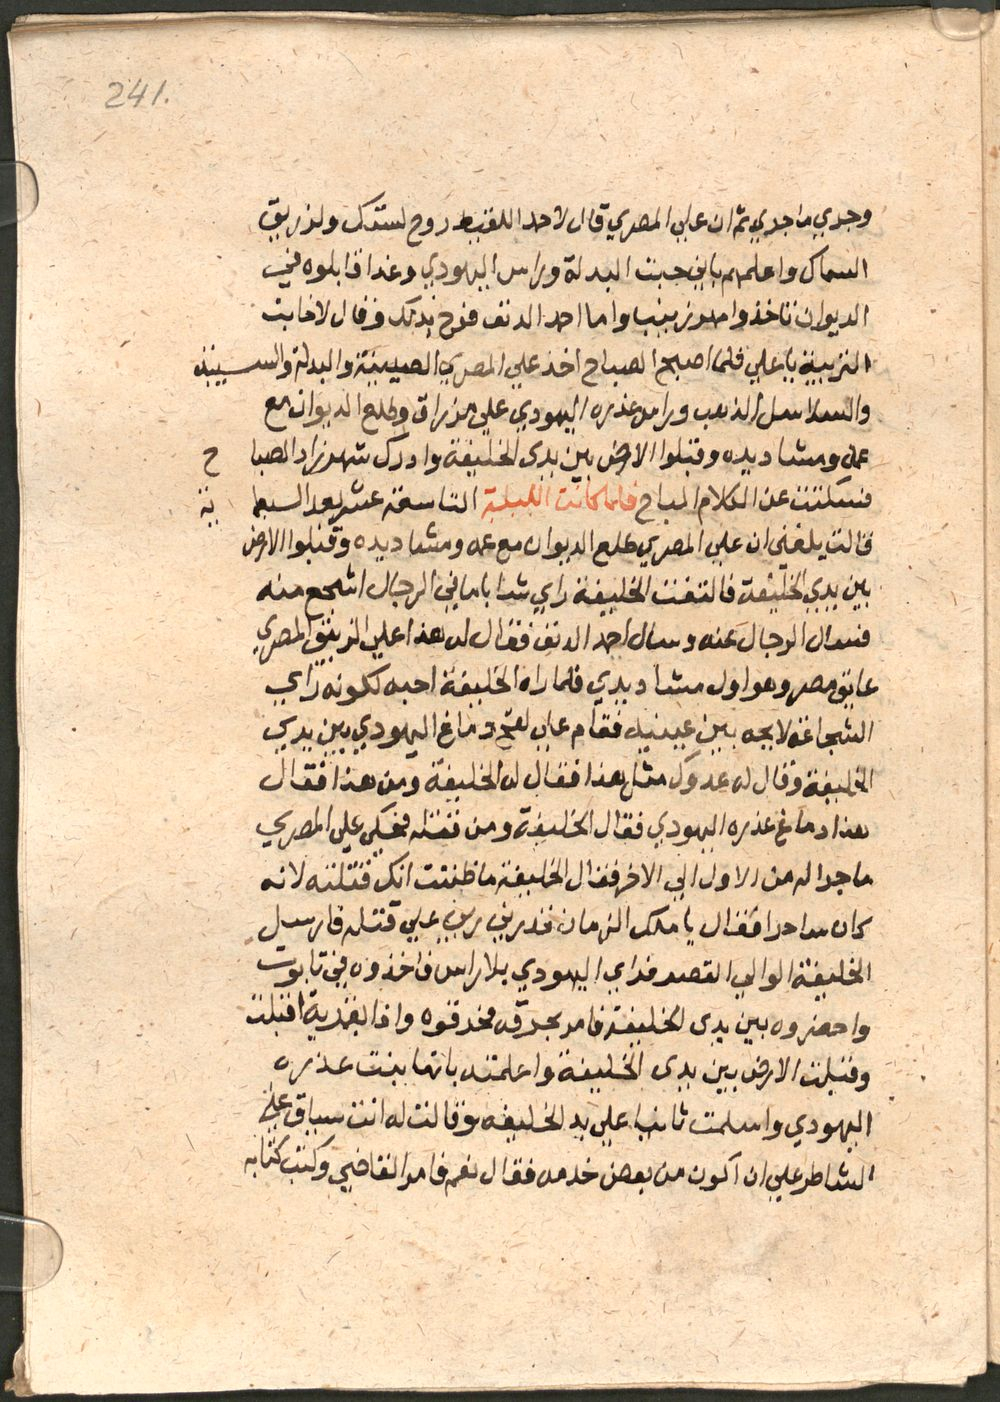 241.
وجري ما جري ثم ان علي المصري قال لاحمد اللقيط روح لستك ولزريق
السماك واعلمهم باني جبت البدلة وراس اليهودي وغدا قابلوه في
الديوان ناخذ وامهر زينب واما احمد الدنف فرح بذلك وقال لاخابت
التربية يا علي فلما اصبح الصباح اخذ علي المصري الصينية والبدلة والسيبة
والسلاسل الذهب وراس عذره اليهودي علي مزراق وطلع الديوان مع
عمه ومشاديده وقبلوا الارض بين يدي الخليفة وادرك شهرزاد الصبا ح
فسكتت عن الكلام المباح فلما كانت الليلة التاسعة عشر بعد السبعما ية
قالت بلغني ان علي المصري طلع الديوان مع عمه ومشاديده وقبلوا الارض
بين يدي الخليفة فالتفت الخليفة راي شابا ما في الرجال اشجع منه
فسال الرجال عنه وسال احمد الدنف فقال له هذا علي الزيبق المصري
عايق مصر وهو اول مشاديدي فلما راه الخليفة احبه لكونه راي
الشجاعة لايحه بين عينيه فقام علي لقح دماغ اليهودي بين يدي
الخليفة وقال له عدوك مثل هذا فقال له الخليفة ومن هذا فقال
هذا دماغ عذره اليهودي فقال الخليفة ومن قتله فحكي علي المصري
ما جرا له من الاول الي الاخر فقال الخليفة ما ظننت انك قتلته لانه
كان ساحرا فقال يا ملك الزمان قدرني ربي علي قتله فارسل
الخليفة الوالي القصر فراي اليهودي بلا راس فاخذوه في تابوت
واحضروه بين يدي الخليفة فامر بحرقه فحرقوه واذا بقمرية اقبلت
وقبلت الارض بين يدي الخليفة واعلمته بانها بنت عذره
اليهودي واسلمت ثانيا علي يد الخليفه وقالت له انت سياق علي
الشاطر علي ان اكون من بعض خدمه فقال نعم فامر القاضي وكتب كتابه